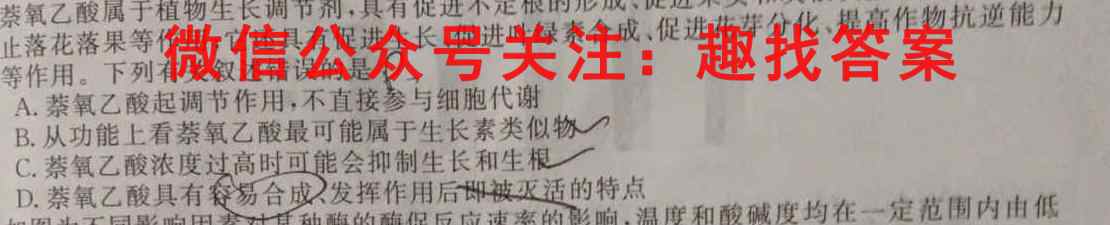 萘氧乙酸属于植物生长调节剂,具有促进不定根的形成、促进果实
止落花落果等作 促进生长、促进叶绿素合成、促进花芽分化、提高作物抗逆能力
微信公众号关注：趣找答案
等作用。下列有关叙述错误的是
A.萘氧乙酸起调节作用,不直接参与细胞代谢
B.从功能上看萘氧乙酸最可能属于生长素类似物
C.萘氧乙酸浓度过高时可能会抑制生长和生根
D.萘氧乙酸具有容易合成、发挥作用后即被灭活的特点
如图为不同影响因素对某种酶的酶促反应速率的影响,温度和酸碱度均在一定范围内由低